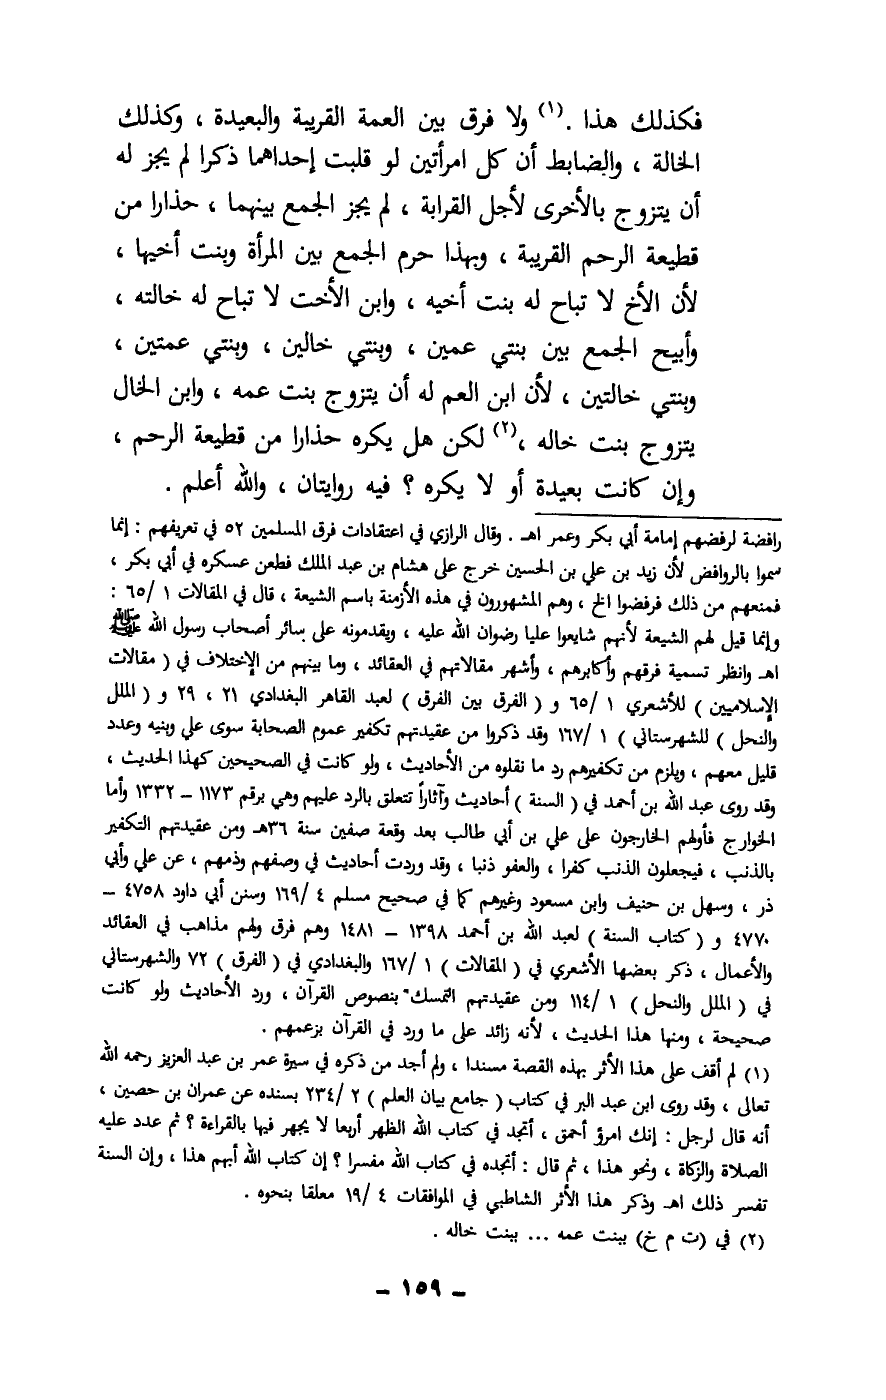 فكذلك هذا .(١) ولا فرق بين العمة القريبة والبعيدة ، وكذلك
الخالة ، والضابط أن كل امرأتين لو قلبت إحداهما ذكرا لم يجز له
أن يتزوج بالأخرى لأجل القرابة ، لم يجز الجمع بينهما ، حذارا من
قطيعة الرحم القريبة ، وبهذا حرم الجمع بين المرأة وبنت أخيها ،
لأن الأخ لا تباح له بنت أخيه ، وابن الأخت لا تباح له خالته ،
وأبيح الجمع بين بنتي عمين ، وبنتي خالين ، وبنتي عمتين ،
وبنتي خالتين ، لأن ابن العم له أن يتزوج بنت عمه ، وابن الخال
يتزوج بنت خاله ،(٢) لكن هل يكره حذارا من قطيعة الرحم ،
وإن كانت بعيدة أو لا يكره ؟ فيه روايتان ، والله أعلم .
رافضة لرفضهم إمامة أبي بكر وعمر اهـ . وقال الرازي في اعتقادات فرق المسلمين ٥٢ في تعريفهم : إنما
سموا بالروافض لأن زيد بن علي بن الحسين خرج على هشام بن عبد الملك فطعن عسكره في أبي بكر ،
فمنعهم من ذلك فرفضوا الخ ، وهم المشهورون في هذه الأزمنة باسم الشيعة ، قال في المقالات ١ /٦٥ :
وإنما قيل لهم الشيعة لأنهم شايعوا عليا رضوان الله عليه ، ويقدمونه على سائر أصحاب رسول الله ﷺ
اهـ وانظر تسمية فرقهم وأكابرهم ، وأشهر مقالاتهم في العقائد ، وما بينهم من الإختلاف في ( مقالات
الإسلاميين ) للأشعري ١ /٦٥ و ( الفرق بين الفرق ) لعبد القاهر البغدادي ٢١ ، ٢٩ و ( الملل
والنحل ) للشهرستاني ) ١ /١٦٧ وقد ذكروا من عقيدتهم تكفير عموم الصحابة سوى علي وبنيه وعدد
قليل معهم ، ويلزم من تكفيرهم رد ما نقلوه من الأحاديث ، ولو كانت في الصحيحين كهذا الحديث ،
وقد روى عبد الله بن أحمد في ( السنة ) أحاديث وآثاراً تتعلق بالرد عليهم وهي برقم ١١٧٣ – ١٣٣٢ وأما
الخوارج فأولهم الخارجون على علي بن أبي طالب بعد وقعة صفين سنة ٣٦هـ ومن عقيدتهم التكفير
بالذنب ، فيجعلون الذنب كفرا ، والعفو ذنبا ، وقد وردت أحاديث في وصفهم وذمهم ، عن علي وأبي
ذر ، وسهل بن حنيف وابن مسعود وغيرهم كما في صحيح مسلم ٤ /١٦٩ وسنن أبي داود ٤٧٥٨ –
٤٧٧٠ و ( كتاب السنة ) لعبد الله بن أحمد ١٣٩٨ – ١٤٨١ وهم فرق ولهم مذاهب في العقائد
والأعمال ، ذكر بعضها الأشعري في ( المقالات ) ١ /١٦٧ والبغدادي في ( الفرق ) ٧٢ والشهرستاني
في ( الملل والنحل ) ١ /١١٤ ومن عقيدتهم التمسك بنصوص القرآن ، ورد الأحاديث ولو كانت
صحيحة ، ومنها هذا الحديث ، لأنه زائد على ما ورد في القرآن بزعمهم .
(١) لم أقف على هذا الأثر بهذه القصة مسندا ، ولم أجد من ذكره في سيرة عمر بن عبد العزيز رحمه الله
تعالى ، وقد روى ابن عبد البر في كتاب ( جامع بيان العلم ) ٢ /٢٣٤ بسنده عن عمران بن حصين ،
أنه قال لرجل : إنك امرؤ أحمق ، أتجد في كتاب الله الظهر أربعا لا يجهر فيها بالقراءة ؟ ثم عدد عليه
الصلاة والزكاة ، ونحو هذا ، ثم قال : أتجده في كتاب الله مفسرا ؟ إن كتاب الله أبهم هذا ، وإن السنة
تفسر ذلك اهـ وذكر هذا الأثر الشاطبي في الموافقات ٤ /١٩ معلقا بنحوه .
(٢) في (ت م خ) ببنت عمه ... ببنت خاله .
– ١٥٩ –